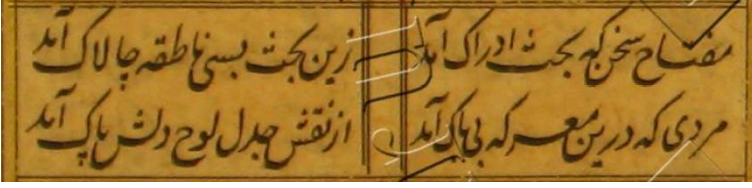 مفتاح سخن که بحث ادراک آمد زین بحث بسی ناطقه چالاک آمد
مردی که درین معرکه بی باک آمد از نقش جدل لوح دلش پاک آمد